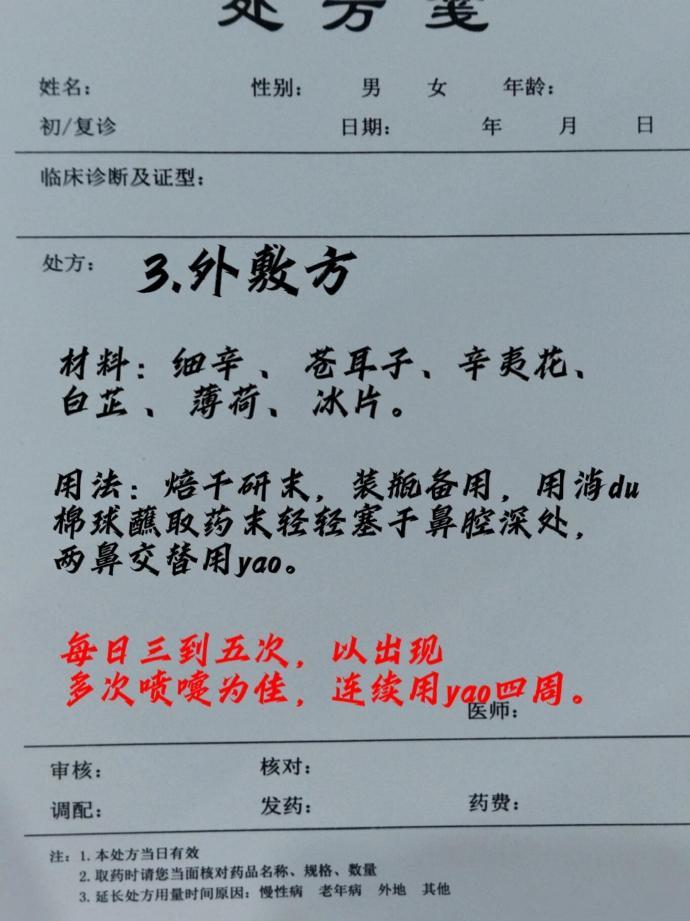 处方笺
姓名： 性别： 男 女 年龄：
初/复诊 日期： 年 月 日
临床诊断及证型：
处方： 3.外敷方
材料：细辛、苍耳子、辛夷花、
白芷、薄荷、冰片。
用法：焙干研末，装瓶备用，用消du
棉球蘸取药末轻轻塞于鼻腔深处，
两鼻交替用yao。
每日三到五次，以出现
多次喷嚏为佳，连续用yao四周。
医师：
审核： 核对：
调配： 发药： 药费：
注：1.本处方当日有效
2.取药时请您当面核对药品名称、规格、数量
3.延长处方用量时间原因：慢性病 老年病 外地 其他